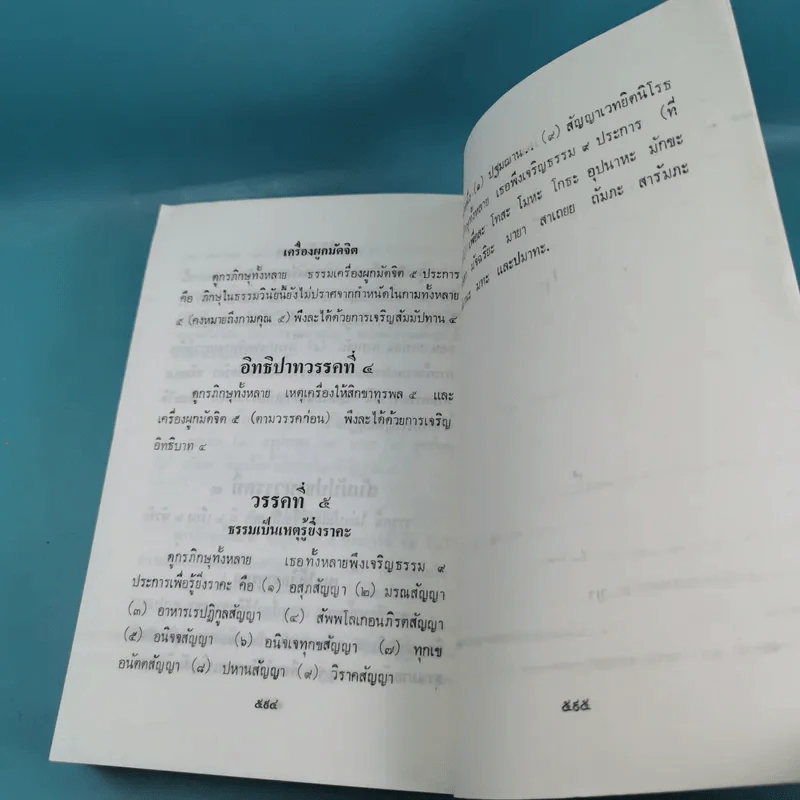 เครื่องผูกมัดจิต
ดูกรภิกษุทั้งหลาย ธรรมเครื่องผูกมัดจิต ๕ ประการ
คือ ภิกษุในธรรมวินัยนี้ยังไม่ปราศจากกำหนัดในกามทั้งหลาย
๕ (คงหมายถึงกามคุณ ๕) พึงละได้ด้วยการเจริญสัมมัปทาน ๔
อิทธิปาทวรรคที่ ๔
ดูกรภิกษุทั้งหลาย เหตุเครื่องให้สิกขาทุรพล ๕ และ
เครื่องผูกมัดจิต ๕ (ตามวรรคก่อน) พึงละได้ด้วยการเจริญ
อิทธิบาท ๔
วรรคที่ ๕
ธรรมเป็นเหตุรู้ยิ่งราคะ
ดูกรภิกษุทั้งหลาย เธอทั้งหลายพึงเจริญธรรม ๙
ประการเพื่อรู้ยิ่งราคะ คือ (๑) อสุภสัญญา (๒) มรณสัญญา
(๓) อาหาเรปฏิกูลสัญญา (๔) สัพพโลเกอนภิรตสัญญา
(๕) อนิจจสัญญา (๖) อนิจเจทุกขสัญญา (๗) ทุกเข
อนัตตสัญญา (๘) ปหานสัญญา (๙) วิราคสัญญา
๕๙๔
(๑) ปฐมฌาน... (๙) สัญญาเวทยิตนิโรธ
เธอพึงเจริญธรรม ๙ ประการ (ที่
โทสะ โมหะ โกธะ อุปนาหะ มักขะ
มัจฉริยะ มายา สาเถยย ถัมภะ สารัมภะ
มทะ และปมาทะ.
๕๙๕